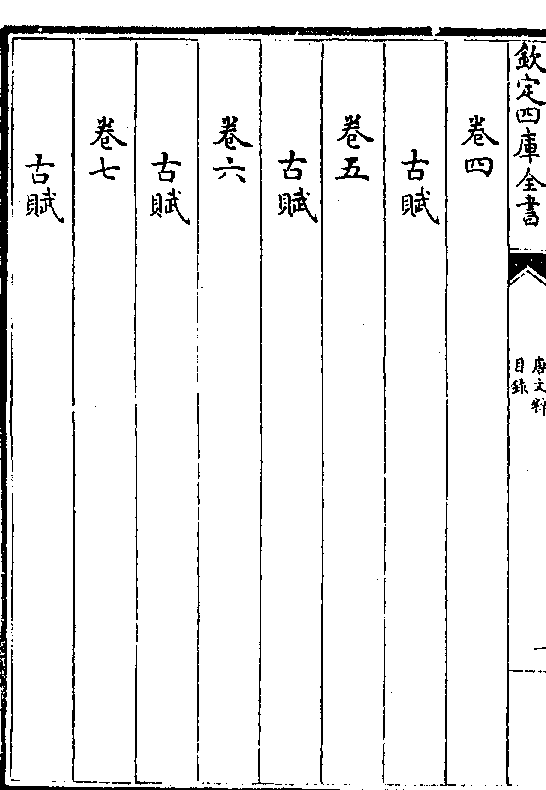 欽定四庫全書
唐文粹
目錄
一
卷四
古賦
卷五
古賦
卷六
古賦
卷七
古賦